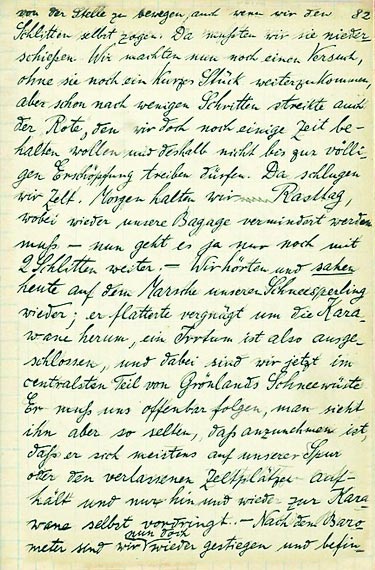 von der Stelle zu bewegen, auch wenn wir den 82
Schlitten selbst zogen. Da mußten wir sie nieder-
schießen. Wir machten nun noch einen Versuch,
ohne sie noch ein kurzes Stück weiterzukommen,
aber schon nach wenigen Schritten streikte auch
der Rote, den wir doch noch einige Zeit be-
halten wollen und deshalb nicht bis zur völli-
gen Erschöpfung treiben dürfen. Da schlugen
wir Zelt. Morgen halten wir Rasttag,
wobei wieder unsere Bagage vermindert werden
muß – nun geht es ja nur noch mit
2 Schlitten weiter. – Wir hörten und sahen
heute auf dem Marsche unseren Schneesperling
wieder; er flatterte vergnügt um die Kara-
wane herum, ein Irrtum ist also ausge-
schlossen, und dabei sind wir jetzt im
centralsten Teil von Grönlands Schneewüste
Er muß uns offenbar folgen, man sieht
ihn aber so selten, daß anzunehmen ist,
daß er sich meistens auf unserer Spur
oder den verlassenen Zeltplätzen auf-
hält und nur hin und wieder zur Kara-
wane selbst vordringt. – Nach dem Baro-
nun doch
meter sind wir wieder gestiegen und befin-